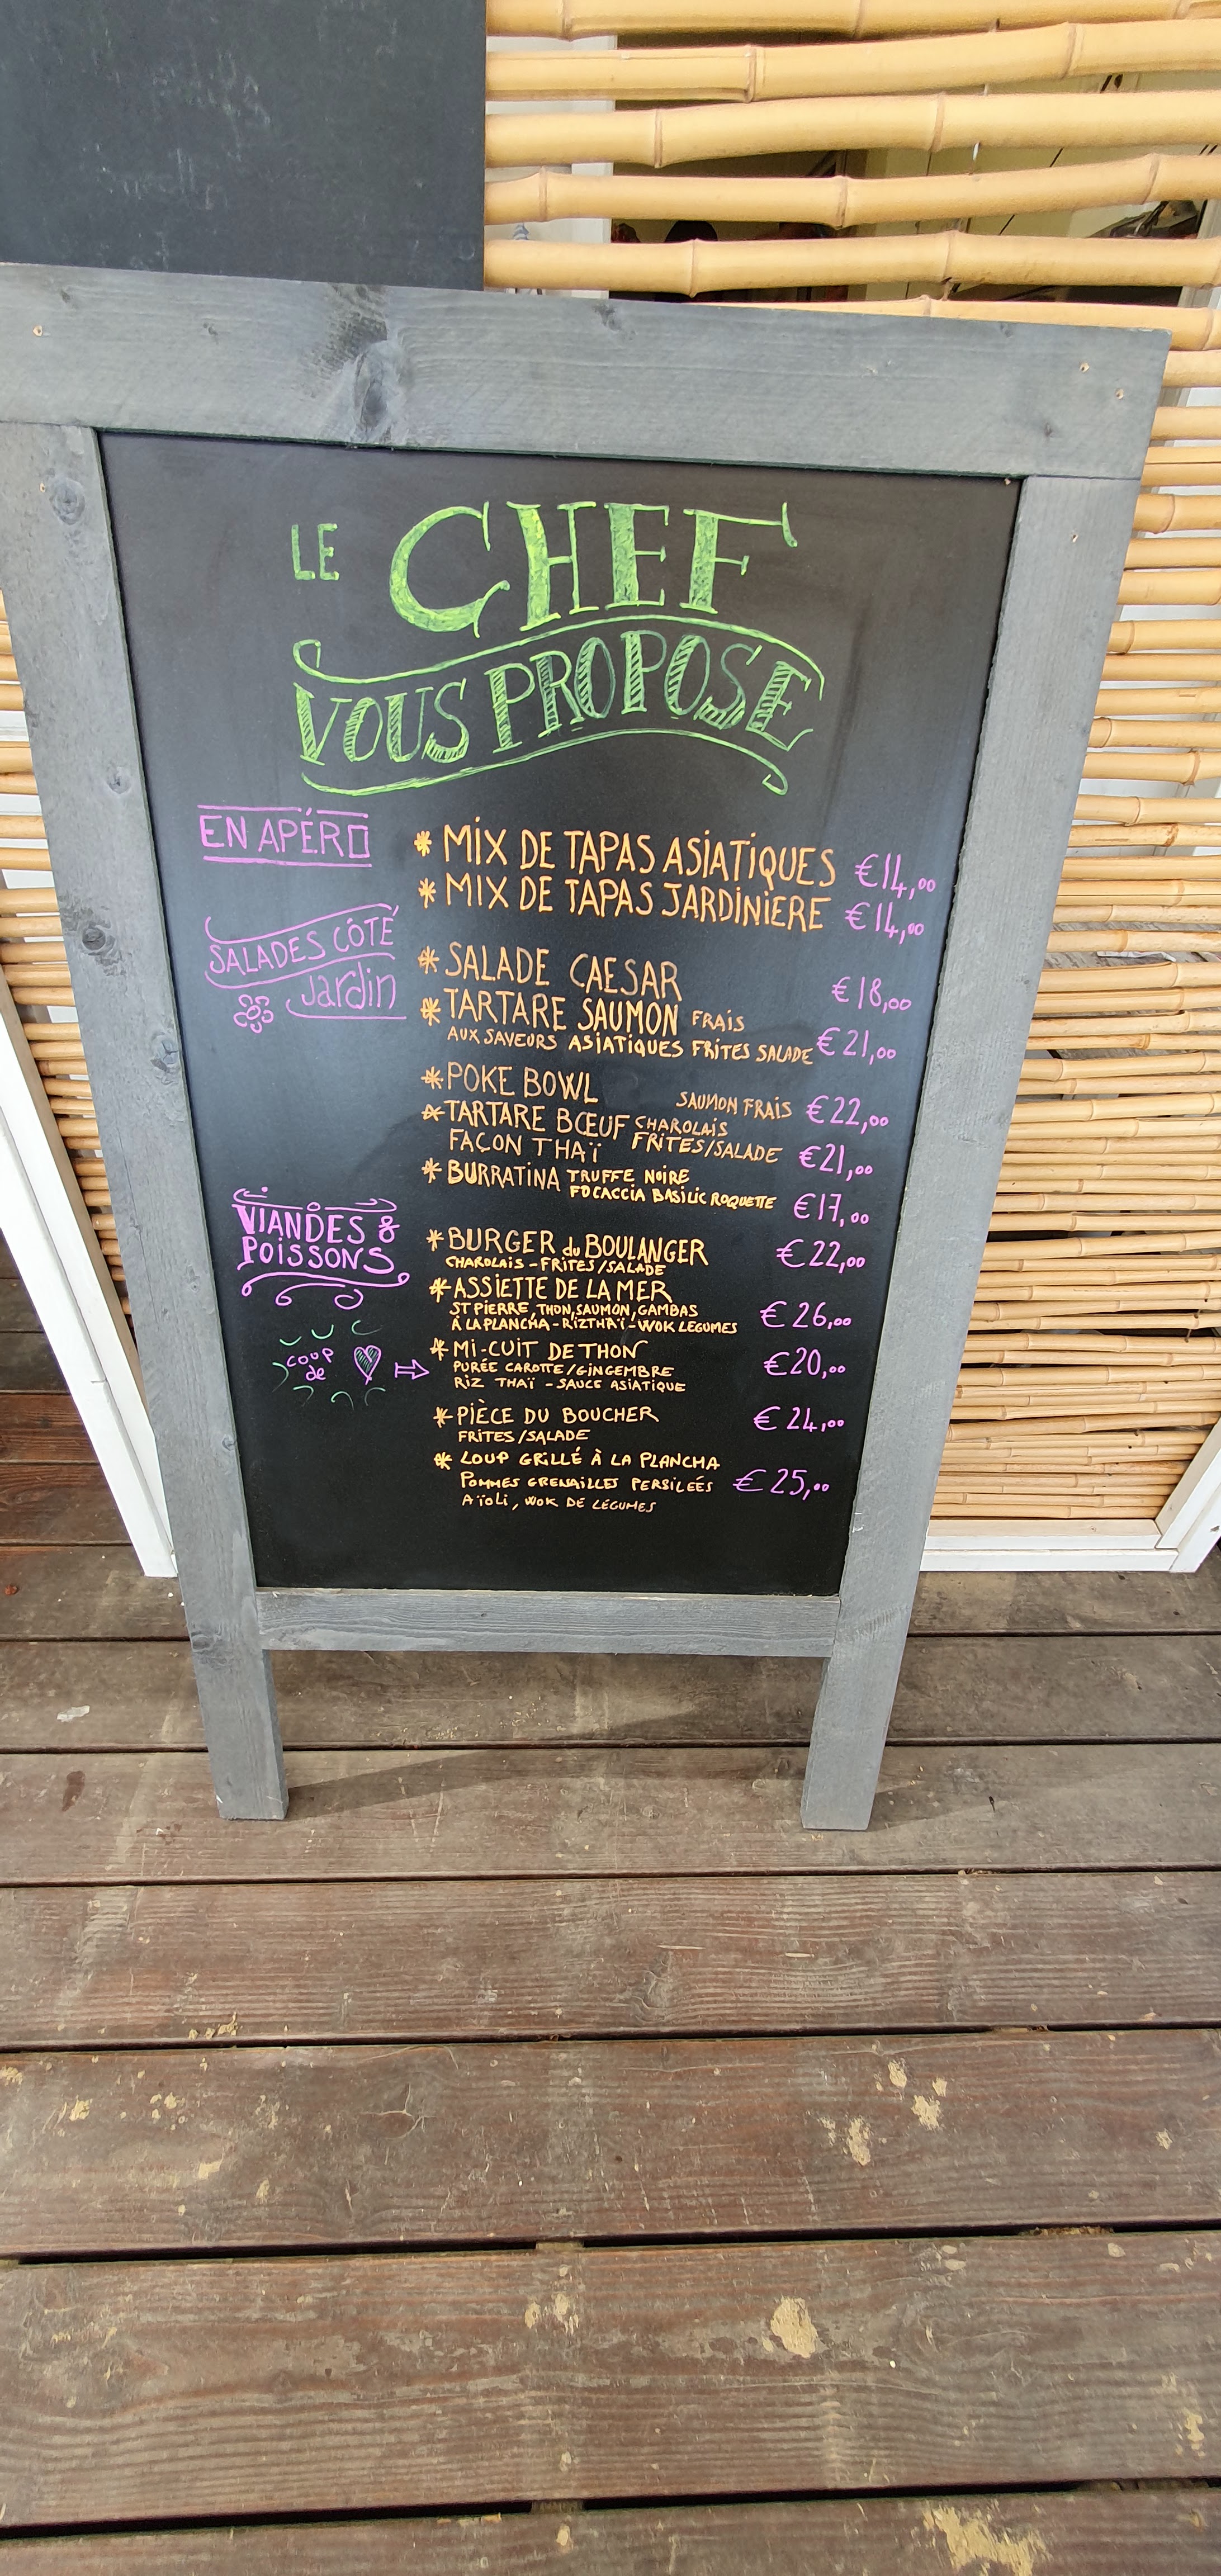 LE CHEF
VOUS PROPOSE
EN APÉRO
* MIX DE TAPAS ASIATIQUES €14,00
* MIX DE TAPAS JARDINIERE €14,00
SALADES CÔTÉ
Jardin
* SALADE CAESAR €18,00
* TARTARE SAUMON FRAIS
AUX SAVEURS ASIATIQUES FRITES SALADE €21,00
* POKE BOWL SAUMON FRAIS €22,00
* TARTARE BŒUF CHAROLAIS
FAÇON THAÏ FRITES/SALADE €21,00
* BURRATINA TRUFFE NOIRE
FOCACCIA BASILIC ROQUETTE €17,00
VIANDES &
POISSONS
* BURGER du BOULANGER €22,00
CHAROLAIS - FRITES/SALADE
* ASSIETTE DE LA MER
ST PIERRE, THON, SAUMON, GAMBAS €26,00
À LA PLANCHA - RIZ THAÏ - WOK LEGUMES
coup
de
* MI-CUIT DE THON €20,00
PURÉE CAROTTE/GINGEMBRE
RIZ THAÏ - SAUCE ASIATIQUE
* PIÈCE DU BOUCHER €24,00
FRITES/SALADE
* LOUP GRILLÉ À LA PLANCHA
POMMES GRENAILLES PERSILEÉS €25,00
AÏOLI, WOK DE LÉGUMES